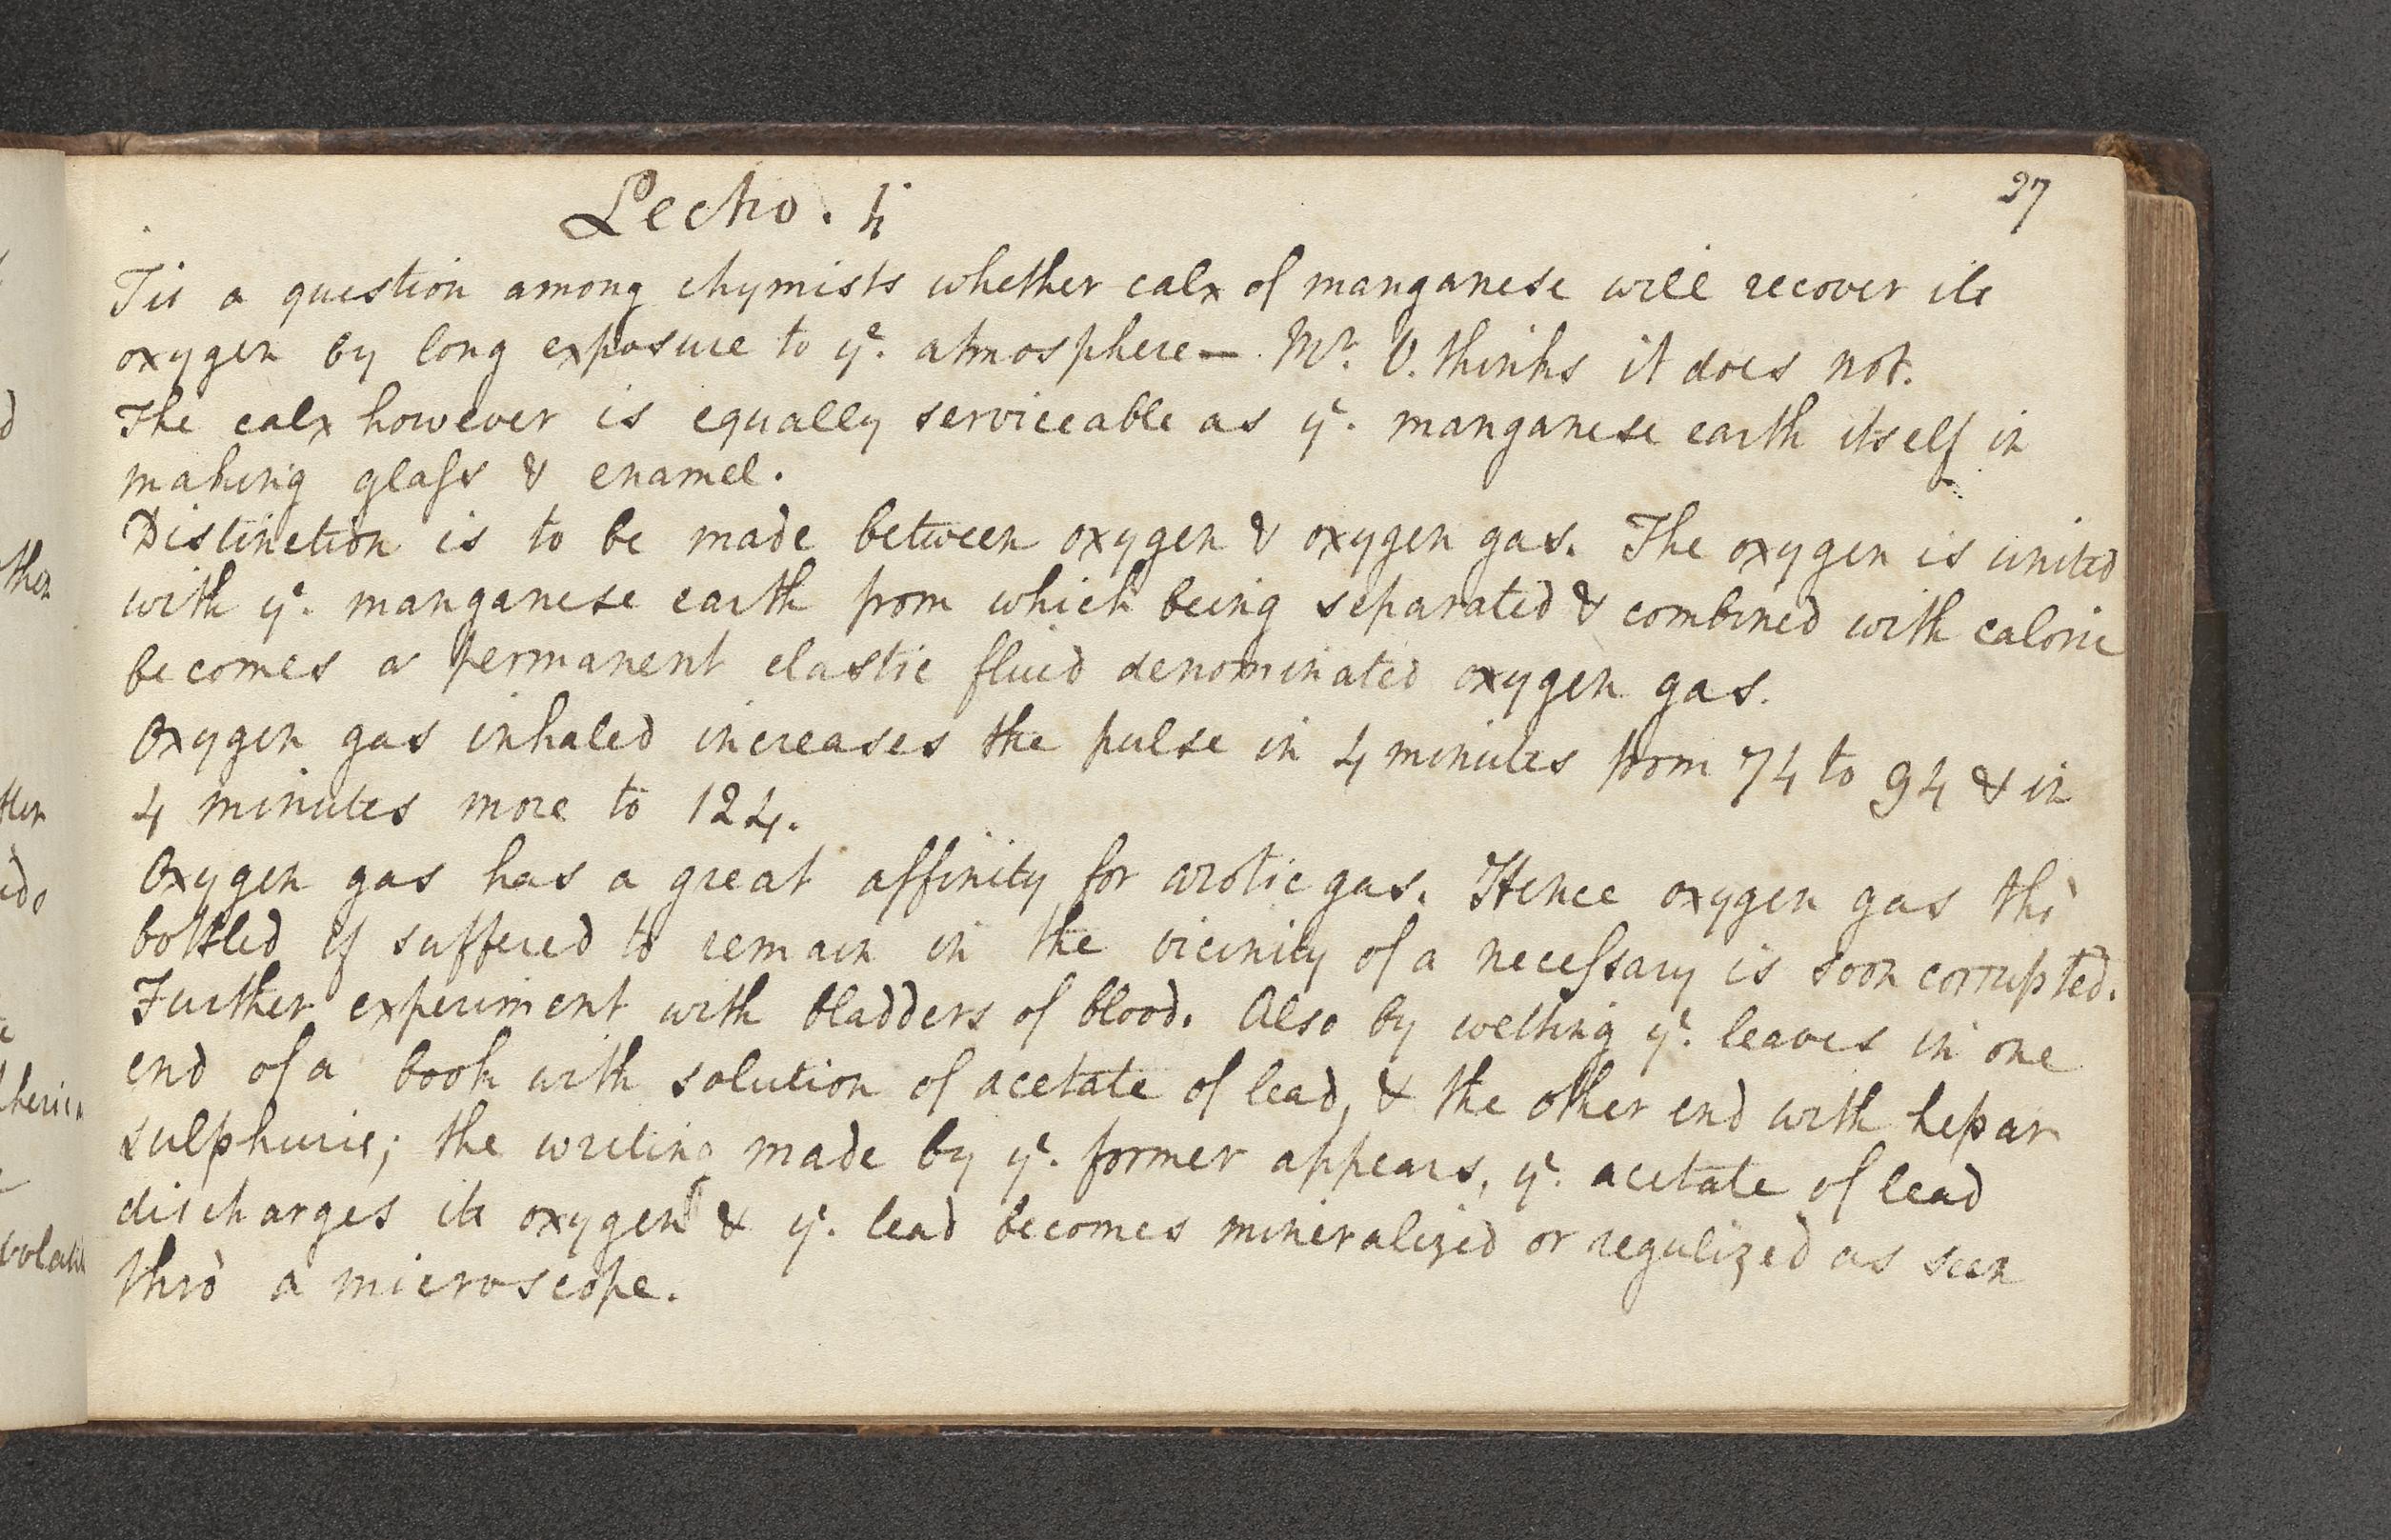 27
Lectio. 4
Tis a question among chymists whether calx of manganese will recover its
oxygen by long exposure to yͤ. atmosphere — Mͬ. V. thinks it does not.
The calx however is equally serviceable as yͤ. manganese earth itself in
making glaſs & enamel.
Distinction is to be made between oxygen & oxygen gas. The oxygen is united
with yͤ. manganese earth from which being separated & combined with caloric
becomes a permanent elastic fluid denominated oxygen gas.
Oxygen gas inhaled increases the pulse in 4 minutes from 74 to 94 & in
4 minutes more to 124.
Oxygen gas has a great affinity for azotic gas. Hence oxygen gas thò
bottled if suffered to remain in the vicinity of a neceſsary is soon corrupted.
Further experiment with bladders of blood. Also by wetting yͤ. leaves in one
end of a book with solution of acetate of lead, & the other end with hepar
sulphuris; the writing made by yͤ. former appears, yͤ. acetate of lead
discharges its oxygen & yͤ. lead becomes mineralized or regulized as seen
thrò a microscope.